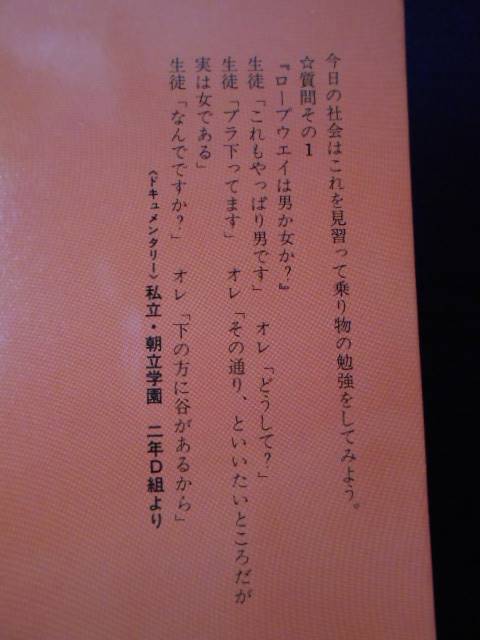 今日の社会はこれを見習って乗り物の勉強をしてみよう。
☆質問その1
『ロープウエイは男か女か？』
生徒「これもやっぱり男です」　オレ「どうして？」
生徒「ブラ下ってます」　オレ「その通り、といいたいところだが
実は女である」
生徒「なんでですか？」　オレ「下の方に谷があるから」
〈ドキュメンタリー〉私立・朝立学園　二年D組より